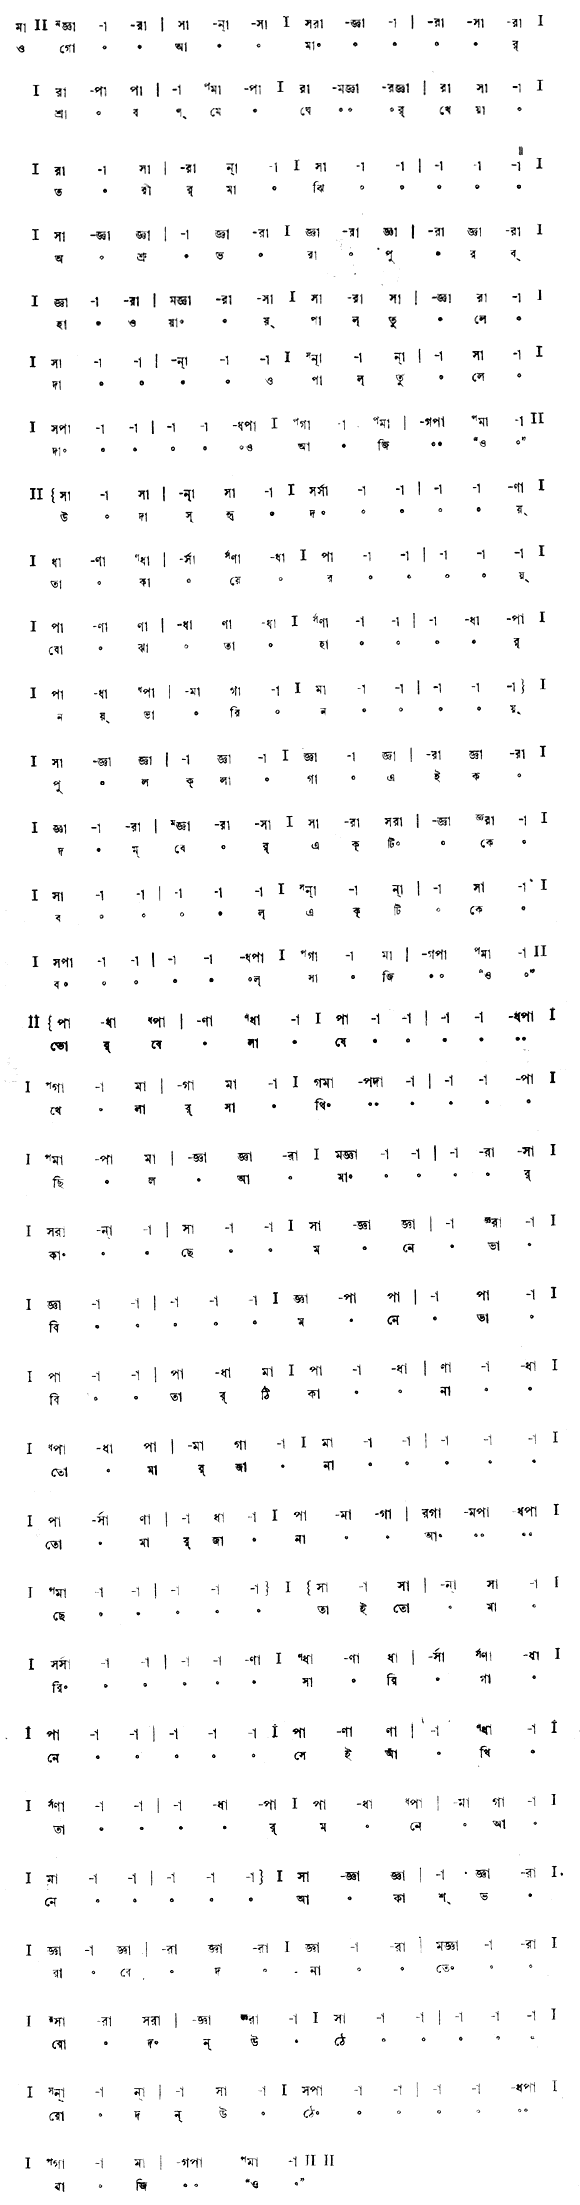 মা II ᵐজ্ঞা -া -রা | সা -ন্া -সা I সরা -জ্ঞা -া | -রা -সা -রা I
ও গো ৽ ৽ আ ৽ ৽ মা৽ ৽ ৽ ৽ ৽ র্
I রা -পা পা | -া ᵖমা -পা I রা -মজ্ঞা -রজ্ঞা | রা সা -া I
শ্রা ৽ ব ণ্ মে ৽ ঘে ৽৽ ৽র্ খে য়া ৽
I রা -া সা | -রা ন্া -া I সা -া -া | -া -া -া I
ত ৽ রী র্ মা ৽ ঝি ৽ ৽ ৽ ৽ ৽
I সা -জ্ঞা জ্ঞা | -া জ্ঞা -রা I জ্ঞা -রা জ্ঞা | -রা জ্ঞা -রা I
অ ৽ শ্রু ৽ ভ ৽ রা ৽ পু ৽ র ব্
I জ্ঞা -া -রা | মজ্ঞা -রা -সা I সা -রা সা | -জ্ঞা রা -া I
হা ৽ ও য়া৽ ৽ র্ পা ল্ তু ৽ লে ৽
I সা -া -া | -ন্া -া -া I ˢন্া -া ন্া | -া সা -া I
দা ৽ ৽ ৽ ৽ ও পা ল্ তু ৽ লে ৽
I সপা -া -া | -া -া -ধপা I ᵖগা -া ᵖমা | -গপা ᵖমা -া II
দা৽ ৽ ৽ ৽ ৽ ৽ও আ ৽ জি ৽৽ "ও ৽"
II {সা -া সা | -ন্া সা -া I সর্সা -া -া | -া -া -ণা I
উ ৽ দা স্ হৃ ৽ দ৽ ৽ ৽ ৽ ৽ য়্
I ধা -ণা ᵖধা | -র্সা র্সণা -ধা I পা -া -া | -া -া -া I
তা ৽ কা ৽ য়ে ৽ র ৽ ৽ ৽ ৽ য়্
I পা -ণা ণা | -ধা ণা -ধা I র্সণা -া -া | -া -ধা -পা I
বো ৽ ঝা ৽ তা ৽ হা ৽ ৽ ৽ ৽ র্
I পা -ধা ᵖপা | -মা গা -া I মা -া -া | -া -া -া} I
ন য়্ ভা ৽ রি ৽ ন ৽ ৽ ৽ ৽ য়্
I সা -জ্ঞা জ্ঞা | -া জ্ঞা -া I জ্ঞা -া জ্ঞা | -রা জ্ঞা -রা I
পু ৽ ল ক্ লা ৽ গা ৽ এ ই ক ৽
I জ্ঞা -া -রা | ᵐজ্ঞা -রা -সা I সা -রা সরা | -জ্ঞা জ্ঞরা -া I
দ ৽ ম্ বে ৽ র্ এ ক্ টি৽ ৽ কে ৽
I সা -া -া | -া -া -া I ˢন্া -া ন্া | -া সা -া I
ব ৽ ৽ ৽ ৽ ল্ এ ক্ টি ৽ কে ৽
I সপা -া -া | -া -া -ধপা I ᵖগা -া মা | -গপা ᵖমা -া II
ব৽ ৽ ৽ ৽ ৽ ৽ল্ সা ৽ জি ৽৽ "ও ৽"
II {পা -ধা ধপা | -ণা ᵖধা -া I পা -া -া | -া -া -ধপা I
ভো র্ বে ৽ লা ৽ যে ৽ ৽ ৽ ৽ ৽৽
I ᵖগা -া মা | -গা মা -া I গমা -পদা -া | -া -া -পা I
খে ৽ লা র্ সা ৽ থি৽ ৽৽ ৽ ৽ ৽ ৽
I ᵖমা -পা মা | -জ্ঞা জ্ঞা -রা I মজ্ঞা -া -া | -া -রা -সা I
ছি ৽ ল ৽ আ ৽ মা৽ ৽ ৽ ৽ ৽ র্
I সরা -ন্া -া | সা -া -া I সা -জ্ঞা জ্ঞা | -া জ্ঞরা -া I
কা৽ ৽ ৽ ছে ৽ ৽ ম ৽ নে ৽ ভা ৽
I জ্ঞা -া -া | -া -া -া I জ্ঞা -পা পা | -া পা -া I
বি ৽ ৽ ৽ ৽ ৽ ম ৽ নে ৽ ভা ৽
I পা -া -া | পা -ধা মা I পা -া -ধা | ণা -া -ধা I
বি ৽ ৽ তা র্ ঠি কা ৽ ৽ না ৽ ৽
I ধপা -ধা পা | -মা গা -া I মা -া -া | -া -া -া I
তো ৽ মা র্ জা ৽ না ৽ ৽ ৽ ৽ ৽
I পা -র্সা ণা | -া ধা -া I পা -মা -গা | রগা -মপা -ধপা I
তো ৽ মা র্ জা ৽ না ৽ ৽ আ৽ ৽৽ ৽৽
I ᵖমা -া -া | -া -া -া} I {সা -া সা | -ন্া সা -া I
ছে ৽ ৽ ৽ ৽ ৽ তা ই তো ৽ মা ৽
I সর্সা -া -া | -া -া -ণা I ᵖধা -ণা ধা | -র্সা র্সণা -ধা I
রি৽ ৽ ৽ ৽ ৽ ৽ সা ৽ রি ৽ গা ৽
I পা -া -া | -া -া -া I পা -ণা ণা | -া ᵖধা -া I
নে ৽ ৽ ৽ ৽ ৽ সে ই আঁ ৽ খি ৽
I র্সণা -া -া | -া -ধা -পা I পা -ধা ধপা | -মা গা -া I
তা ৽ ৽ ৽ ৽ র্ ম ৽ নে ৽ আ ৽
I মা -া -া | -া -া -া} I সা -জ্ঞা জ্ঞা | -া জ্ঞা -রা I
নে ৽ ৽ ৽ ৽ ৽ আ ৽ কা শ্ ভ ৽
I জ্ঞা -া জ্ঞা | -রা জ্ঞা -রা I জ্ঞা -া -রা | মজ্ঞা -া -রা I
রা ৽ বে ৽ দ ৽ না ৽ ৽ তে৽ ৽ ৽
I সা -রা সরা | -জ্ঞা জ্ঞরা -া I সা -া -া | -া -া -া I
রো ৽ দ৽ ন্ উ ৽ ঠে ৽ ৽ ৽ ৽ ৽
I ˢন্া -া ন্া | -া সা -া I সপা -া -া | -া -া -ধপা I
রো ৽ দ ন্ উ ৽ ঠে৽ ৽ ৽ ৽ ৽ ৽৽
I ᵖগা -া মা | -গপা ᵖমা -া II II
বা ৽ জি ৽৽ "ও ৽"